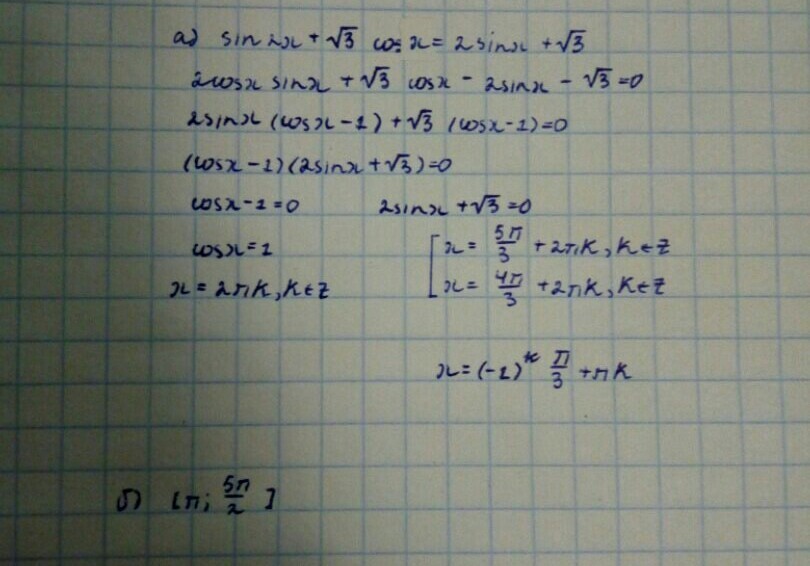 а) sin 2x + √3 cos x = 2 sin x + √3
2cosx sinx + √3 cosx - 2sinx - √3 = 0
2sinx (cosx - 1) + √3 (cosx - 1) = 0
(cosx - 1)(2sinx + √3) = 0
cosx - 1 = 0 2sinx + √3 = 0
cosx = 1 [ x = 5π/3 + 2πk, k ∈ Z
x = 2πk, k ∈ Z [ x = 4π/3 + 2πk, k ∈ Z
x = (-1)^k π/3 + πk
б) [π; 5π/2]